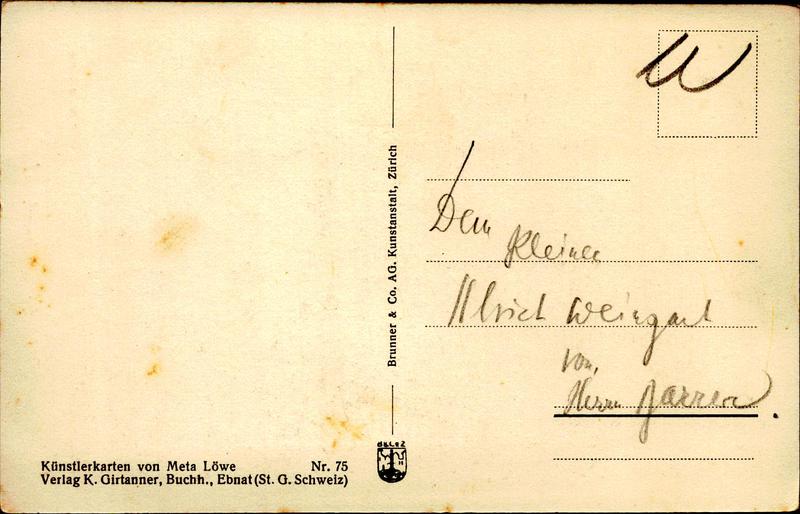 Dem
kleinen
Ulrich Weingart
von
Herrn
Brunner & Co. AG. Kunstanstalt, Zürich
Künstlerkarten von Meta Löwe Nr. 75
Verlag K. Girtanner, Buchh., Ebnat (St. G. Schweiz)